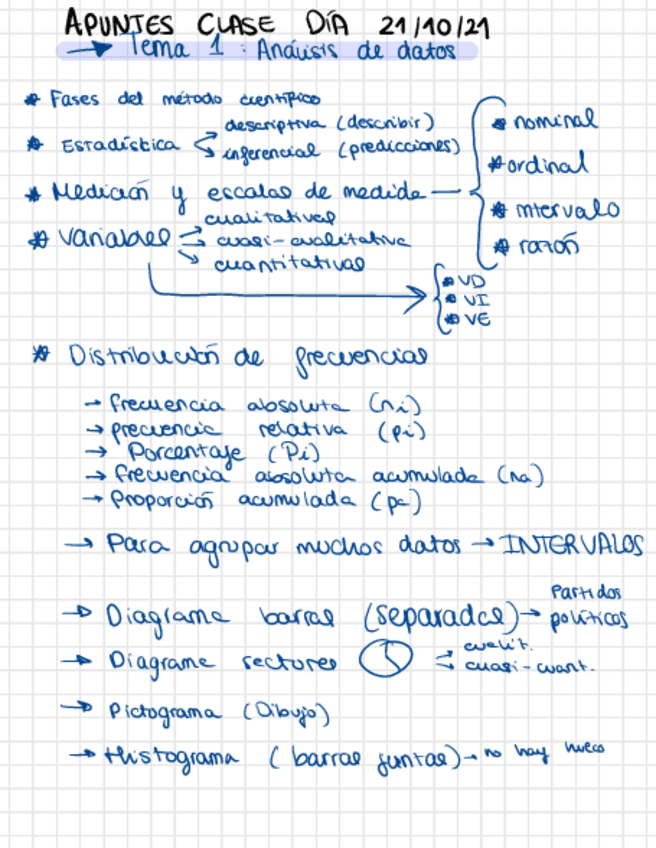 APUNTES CLASE DÍA 21/10/21
→ Tema 1: Análisis de datos
* Fases del método científico
* Estadística
descriptiva (describir)
inferencial (predicciones)
* Medición y escalas de medida
* nominal
* ordinal
* intervalo
* razón
* Variables
cualitativas
cuasi-cualitativa
cuantitativas
* VD
* VI
* VE
* Distribución de frecuencias
→ frecuencia absoluta (ni)
→ frecuencia relativa (pi)
→ Porcentaje (Pi)
→ frecuencia absoluta acumulada (na)
→ Proporción acumulada (pa)
→ Para agrupar muchos datos → INTERVALOS
→ Diagrama barras (separadas) → Partidos políticos
→ Diagrama sectores
cualit.
cuasi-cuant.
→ Pictograma (Dibujo)
→ Histograma (barras juntas) → no hay hueco